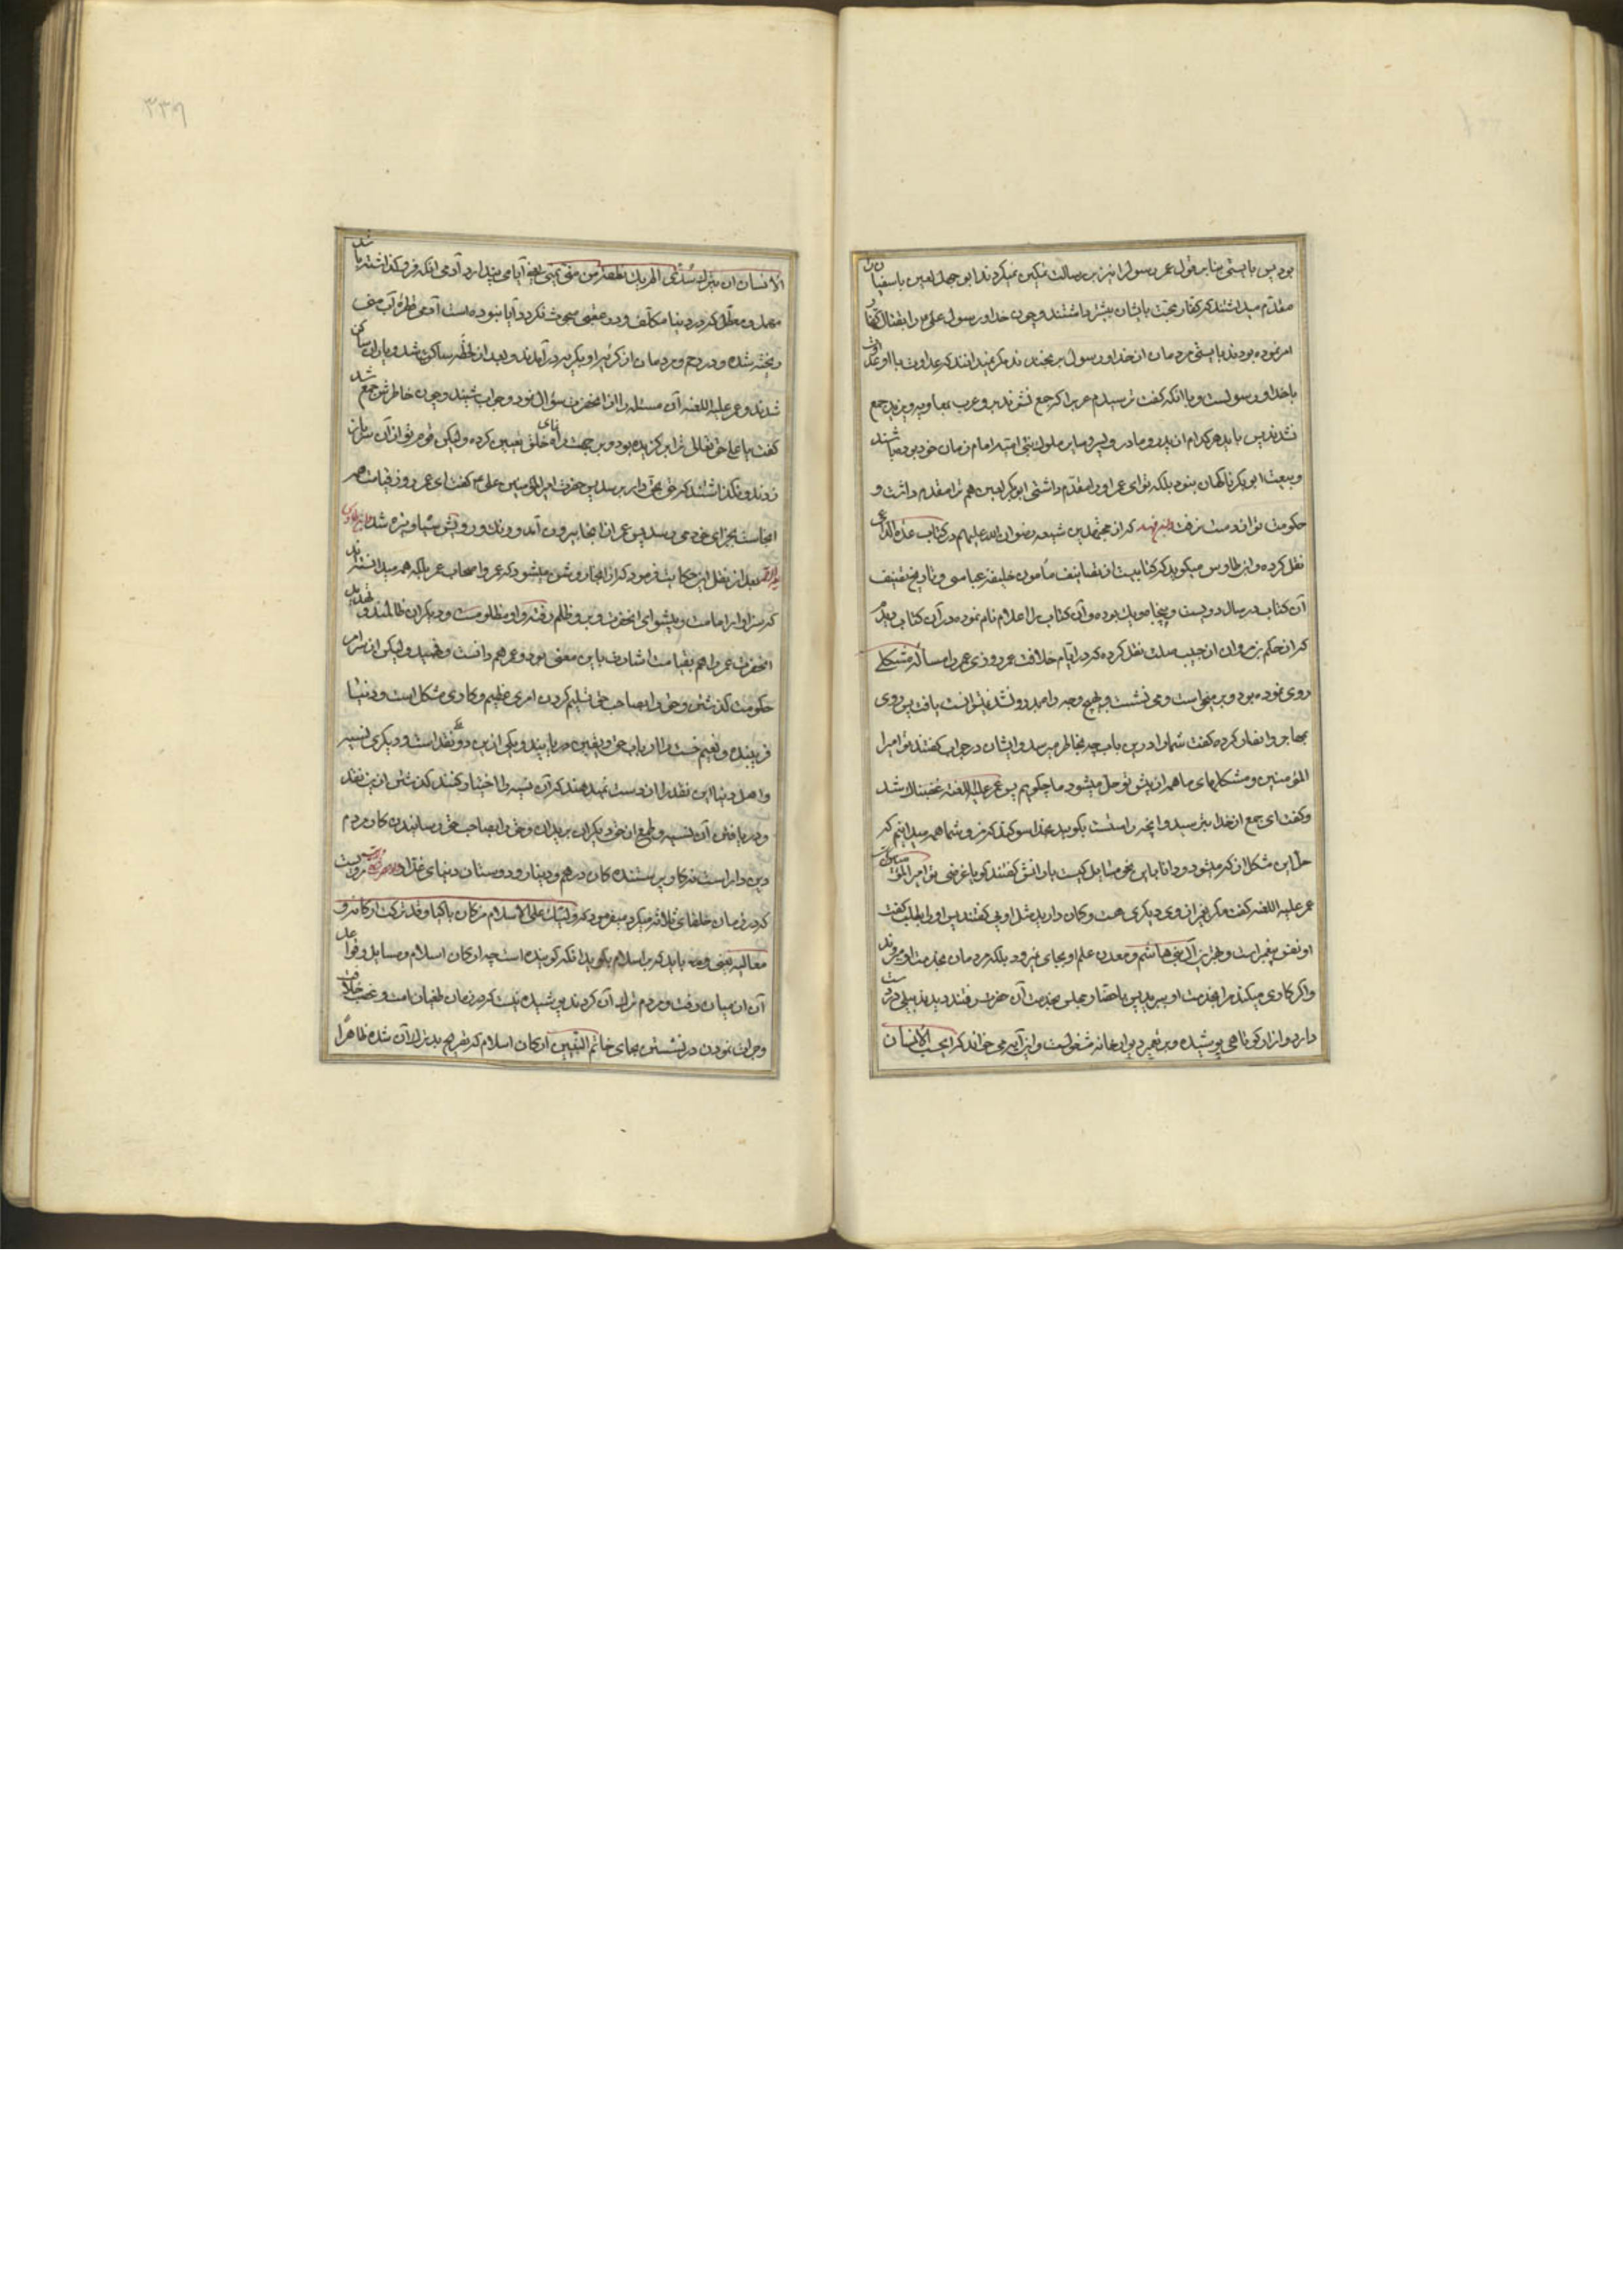 بود پس بایستی بنابر قول عمر رسول را نیز بر رسالت تمکین نمیکردند ابو جهل لعین یا سفیان
مقدم میداشتند که کفار محبت بایشان بیشتر داشتند و چون خدا و رسول علی را بقتال کفار
امر نموده بودند بایستی مردمان از خدا و رسول برنجند مگر نمیدانند که عداوت با او عداوت
با خدا و رسولست و با آنکه گفت ترسیدم عرب اگر جمع نشوند بر و عرب بمعاویه و یزید جمع
نشدند پس باید هر کدام از پدر و مادر و پسر و سایر ملوک بنی امیه امام زمان خود بوده باشند
و بیعت ابوبکر ناگهان نبود بلکه تو ای عمر او را مقدم داشتی ابوبکر لعین هم ترا مقدم داشت و
حکومت تو از دست نرفت که از مجتهدین شیعه رضوان الله علیهم در کتاب عدة الداعی
نقل کرده و ابن طاوس میگوید که کتابیست از تصانیف مأمون خلیفه عباسی و تاریخ تصنیف
آن کتاب در سال دویست و پنجاه و یک بوده و آن کتاب را اعلام نام نموده در آن کتاب دیدم
که از حکم بن مروان از جبیب صلت نقل کرده که در ایام خلافت عمر روزی عمر را مسأله مشکلی
روی نموده بود و بر میخواست و می نشست و بهیچ وجه راه بدر رو نشد نتوانست یافت پس روی
بمهاجر و انصار کرده گفت شما را درین باب چه بخاطر میرسد ایشان در جواب گفتند تو امیر
المؤمنین و مشکلهای ما همه از پیش تو حل میشود ما چگوییم پس عمر علیه اللعنه غضبناک شد
و گفت ای جمع از خدا بترسید و آنچه راستست بگویید بخدا سوگند که من و شما همه میدانیم که
حل این مشکل از که میشود و دانا باین نحو مسایل کیست یارانش گفتند گویا غرض تو امیر المؤمنین است
عمر علیه اللعنه گفت مگر بغیر از وی دیگری هست و گمان دارید مثل اویی گفتند پس او را بطلب گفت
او نفس پیغمبر است و بهترین آل بنی هاشم و معدن علم او بجای نمیرود بلکه مردمان بخدمت او میروند
و اگر کاری میکند مرا بخدمت او ببرید پس با حضار مجلس بخدمت آن حضرت رفتند دیدند بیلی در دست
دارد و ازار کوتاهی پوشیده و بتعمیر دیوار خانه مشغولست و این آیه می خواند که ایحسب الانسان
۳۳۶
الانسان ان یترک سدی الم یک نطفة من منی یمنی یعنی آیا می پندارد آدمی آنکه فرو گذاشته باشد
مهمل و معطل که در دنیا مکلف و در عقبی مبعوث نگردد و آیا نبوده است آدمی قطره آب منی
ریخته شده در رحم و مردمان از گریه او بگریه در آمدند و بعد از لحظه ساکن شد و یاران ساکن
شدند و عمر علیه اللعنه آن مسئله را از آنحضرت سؤال نمود و جواب شنید و چون خاطرش جمع شد
گفت یا علی حق تعالی ترا برگزیده بود و بر جهت راه نمای خلق تعیین کرده و لیکن قوم تو از آن سر باز
زدند و نگذاشتند که حق بحق دار برسد پس حضرت امیر المؤمنین علی گفت ای عمر روز قیامت هر
بجزای خود می رسد پس عمر از آنجا بیرون آمد و رنگ و رویش سیاه و تیره شد
بعد از نقل این حکایت فرمود که از اینجا روشن میشود که عمر و اصحاب عمر بلکه همه میدانستند
که سزاوار امامت و پیشوای آنحضرت و بر او ظلم رفته و او مظلومست و دیگران ظالمند و
آنحضرت عمر را هم بقیامت اشارت باین معنی بود و عمر هم دانست و فهمید و لیکن از سر امر
حکومت گذشتن و حق را بصاحب حق تسلیم کردن امری عظیم و کاری مشکل است و دنیا
فریبنده و نعیم جنت را ارباب حق و یقین دریابند و یکی ازین دو نقد است و دیگری نسیه
و اهل دنیا این نقد را از دست نمیدهند که آن نسیه را اختیار کنند گذشتن ازین نقد
و دریافتن آن نسیه و طمع از حق دیگران بریدن و حق را بصاحب حق رسانیدن کار مردم
دین دار است نه کار پرستنده کان درهم و دینار و دوستان دنیای غدار مرویست
که در زمان خلفای ثلاثه میگرید میفرمود که و لیبک علی الاسلام من کان باکیا و قد ترکت ارکانه و
معالمه یعنی و باید که بر اسلام بگوید آنکه گوینده است چه ارکان اسلام و مسایل و قواعد
آن از میان رفت و مردم ترک آن کردند پوشیده نیست که در زمان طغیان امت و غصب خلافت
و جرات نمودن در نشستن بجای خاتم النبیین ارکان اسلام که تصریح بترک آن شده ظاهرا